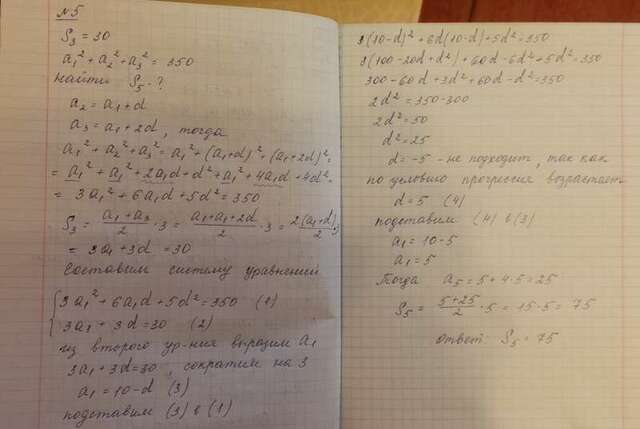 №5
S₃ = 30
a₁² + a₂² + a₃² = 350
Найти S₅ - ?
a₂ = a₁ + d
a₃ = a₁ + 2d, тогда
a₁² + a₂² + a₃² = a₁² + (a₁+d)² + (a₁+2d)² =
= a₁² + a₁² + 2a₁d + d² + a₁² + 4a₁d + 4d² =
= 3a₁² + 6a₁d + 5d² = 350
S₃ = (a₁ + a₃)/2 · 3 = (a₁ + a₁ + 2d)/2 · 3 = 2(a₁+d)/2 · 3
= 3a₁ + 3d = 30
Составим систему уравнений
{ 3a₁² + 6a₁d + 5d² = 350 (1)
3a₁ + 3d = 30 (2)
из второго ур-ния выразим a₁
3a₁ + 3d = 30, сократим на 3
a₁ = 10 - d (3)
подставим (3) в (1)
3(10-d)² + 6d(10-d) + 5d² = 350
3(100 - 20d + d²) + 60d - 6d² + 5d² = 350
300 - 60d + 3d² + 60d - d² = 350
2d² = 350 - 300
2d² = 50
d² = 25
d = -5 - не подходит, так как
по условию прогрессия возрастает
d = 5 (4)
подставим (4) в (3)
a₁ = 10 - 5
a₁ = 5
Тогда a₅ = 5 + 4·5 = 25
S₅ = (5+25)/2 · 5 = 15·5 = 75
ответ S₅ = 75